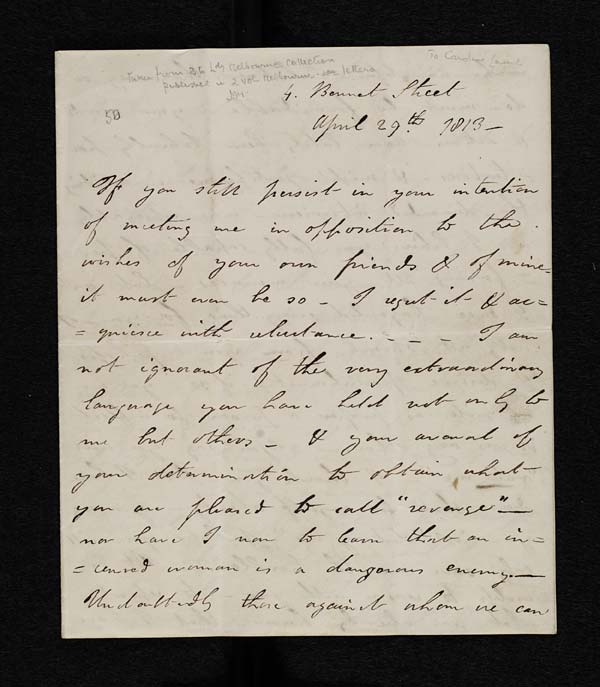 To Caroline Lamb
Taken from 36 Ldy Melbourne Collection
published in 2 vol Melbourne
letters
50
4. Bennet Street
April 29th. 1813 -
If you still persist in your intention
of meeting me in opposition to the
wishes of your own friends & of mine -
it must even be so - I regret it & ac=
=quiesce with reluctance. - - - I am
not ignorant of the very extraordinary
language you have held not only to
me but others - & your avowal of
your determination to obtain what
you are pleased to call "revenge" -
nor have I now to learn that an in=
=censed woman is a dangerous enemy. -
Undoubtedly those against whom we can